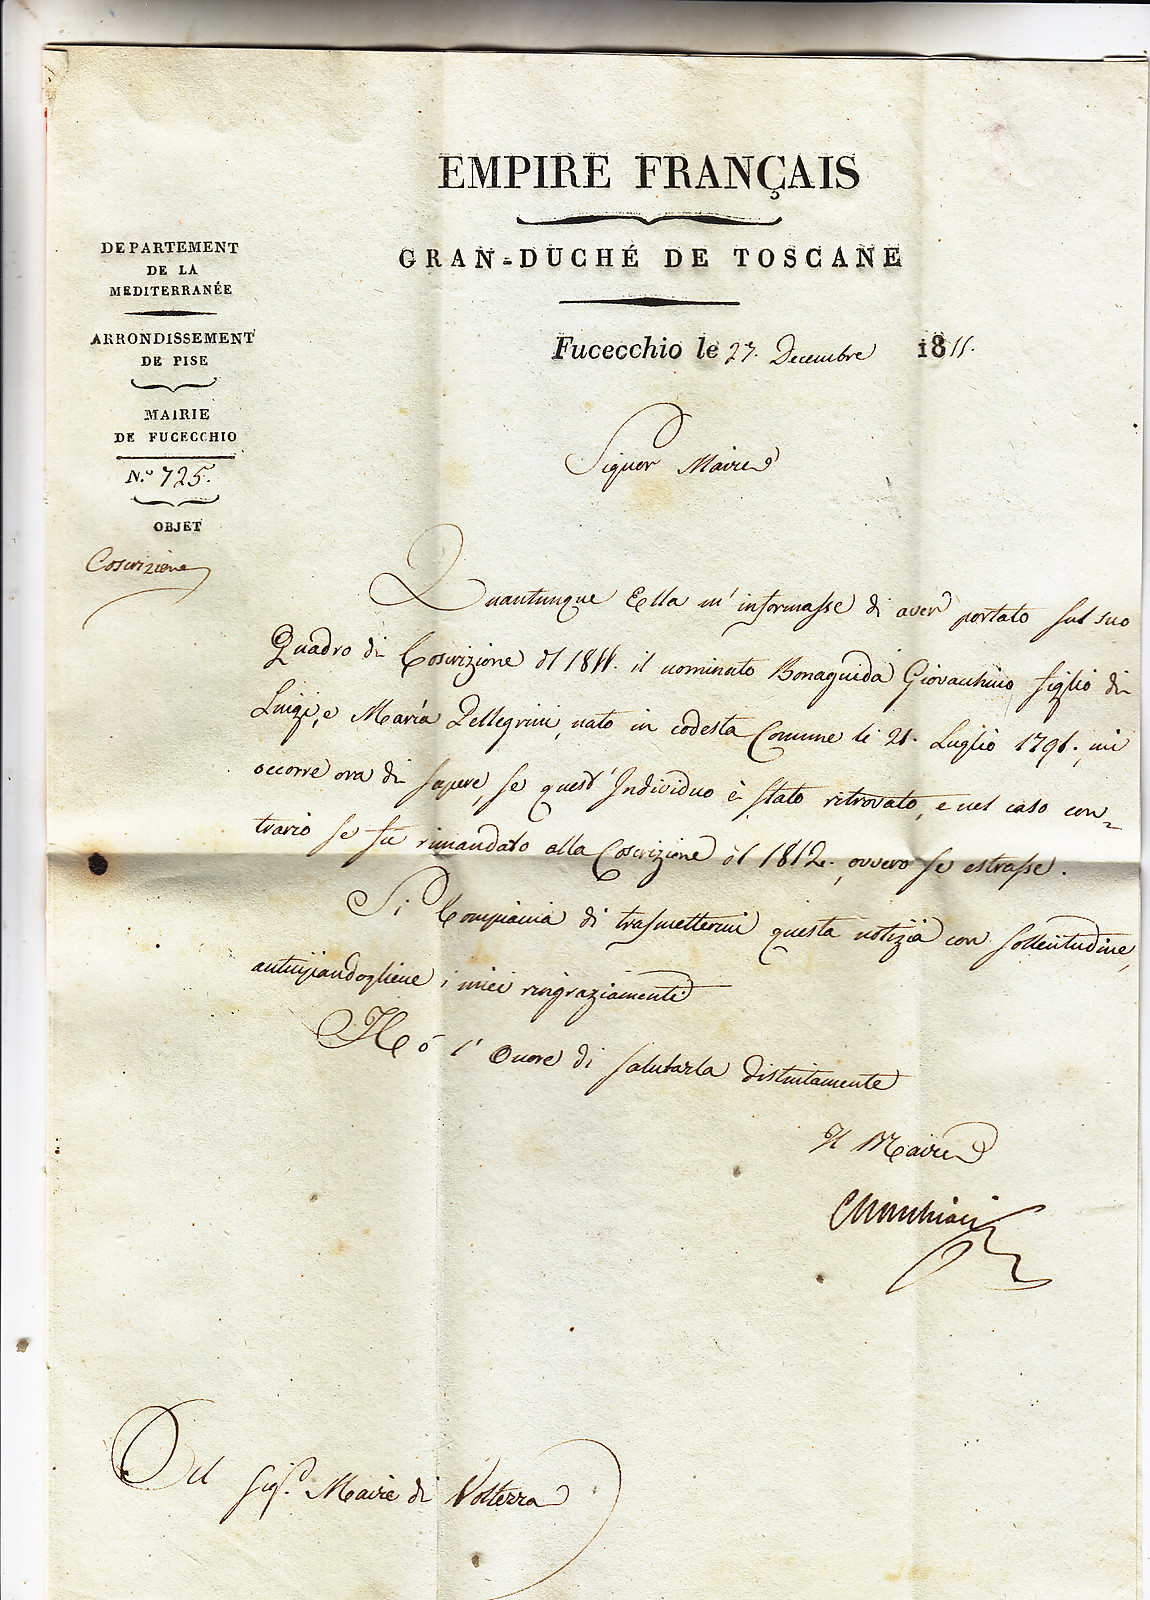 EMPIRE FRANÇAIS
GRAN-DUCHÉ DE TOSCANE
DEPARTEMENT
DE LA
MEDITERRANÉE
ARRONDISSEMENT
DE PISE
MAIRIE
DE FUCECCHIO
N.º 725.
OBJET
Coscrizione
Fucecchio le 27. Decembre 1811.
Signor Maire
Quantunque Ella m'informasse di aver portato sul suo
Quadro di Coscrizione del 1811. il nominato Bonaguida Giovacchino figlio di
Luigi, e Maria Pellegrini, nato in codesta Comune li 21. Luglio 1791., mi
occorre ora di sapere, se quest'Individuo è stato ritrovato, e nel caso con=
trario se fu rimandato alla Coscrizione del 1812., ovvero se estrasse.
Si Compiacia di trasmettermi questa notizia con sollecitudine,
anticipandogliene i miei ringraziamenti
Ho ó l'Onore di salutarla distintamente
Il Maire
Del Sig.r Maire di Volterra